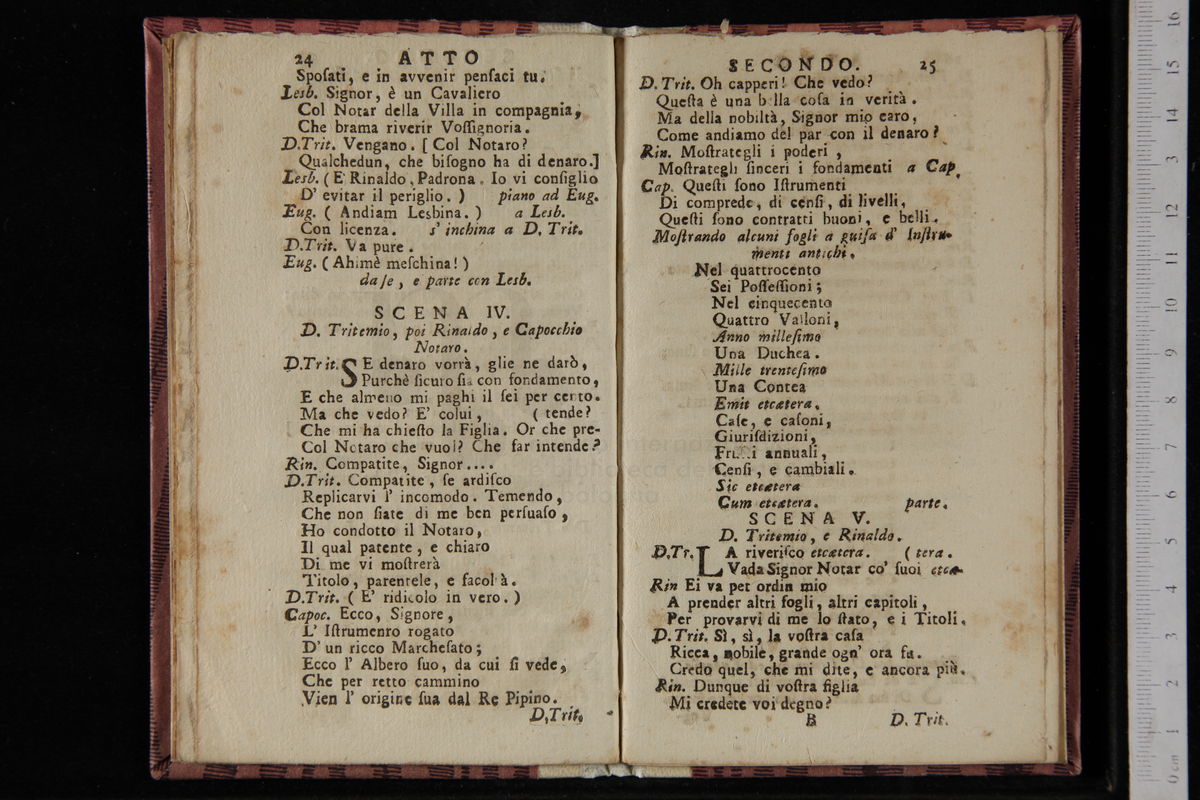 24 ATTO
Spoſati, e in avvenir penſaci tu.
Lesb. Signor, è un Cavaliero
Col Notar della Villa in compagnia,
Che brama riverir Voſſignoria.
D.Trit. Vengano. [ Col Notaro?
Qualchedun, che biſogno ha di denaro.]
Lesb. ( E' Rinaldo, Padrona. Io vi conſiglio
D' evitar il periglio. ) piano ad Eug.
Eug. ( Andiam Lesbina. ) a Lesb.
Con licenza. s' inchina a D. Trit.
D.Trit. Va pure.
Eug. ( Ahimè meſchina! )
da ſe, e parte con Lesb.
SCENA IV.
D. Tritemio, poi Rinaldo, e Capocchio
Notaro.
D.Trit. SE denaro vorrà, glie ne darò,
Purchè ſicuro ſia con fondamento,
E che almeno mi paghi il ſei per cento.
Ma che vedo? E' colui, ( tende?
Che mi ha chieſto la Figlia. Or che pre-
Col Notaro che vuol? Che far intende?
Rin. Compatite, Signor....
D.Trit. Compatite, ſe ardiſco
Replicarvi l' incomodo. Temendo,
Che non ſiate di me ben perſuaſo,
Ho condotto il Notaro,
Il qual patente, e chiaro
Di me vi moſtrerà
Titolo, parentele, e facoltà.
D.Trit. ( E' ridicolo in vero. )
Capoc. Ecco, Signore,
L' Iſtrumenro rogato
D' un ricco Marcheſato;
Ecco l' Albero ſuo, da cui ſi vede,
Che per retto cammino
Vien l' origine ſua dal Re Pipino.
D.Trit.
SECONDO. 25
D. Trit. Oh capperi! Che vedo?
Queſta è una bella coſa in verità.
Ma della nobiltà, Signor mio caro,
Come andiamo del par con il denaro?
Rin. Moſtrategli i poderi,
Moſtrategli ſinceri i fondamenti a Cap.
Cap. Queſti ſono Iſtrumenti
Di comprede, di cenſi, di livelli,
Queſti ſono contratti buoni, e belli.
Moſtrando alcuni fogli a guiſa d' Inſtru-
menti antichi.
Nel quattrocento
Sei Poſſeſſioni;
Nel cinquecento
Quattro Valloni,
Anno milleſimo
Una Duchea.
Mille trenteſimo
Una Contea
Emit etcætera.
Caſe, e caſoni,
Giuriſdizioni,
annuali,
Cenſi, e cambiali.
Sic etcætera
Cum etcætera. parte.
SCENA V.
D. Tritemio, e Rinaldo.
D.Tr. LA riveriſco etcætera. ( tera.
Vada Signor Notar co' ſuoi etcæ-
Rin Ei va per ordin mio
A prender altri fogli, altri capitoli,
Per provarvi di me lo ſtato, e i Titoli.
D. Trit. Sì, sì, la voſtra caſa
Ricca, nobile, grande ogn' ora fu.
Credo quel, che mi dite, e ancora più.
Rin. Dunque di voſtra figlia
Mi credete voi degno?
B D. Trit.